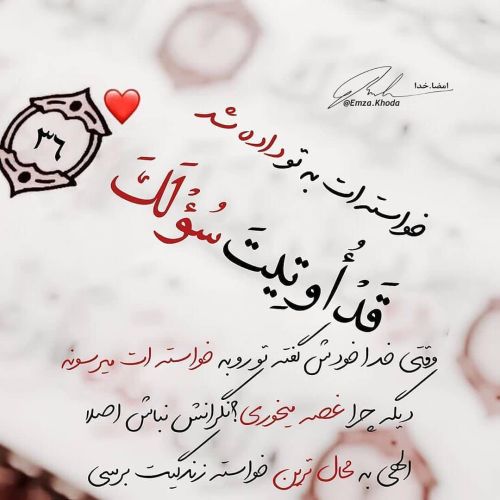 امضا.خدا
@Emza.Khoda
۳۶
خواسته ات به تو داده شد
قَدْ أُوتِيتَ سُؤْلَكَ
وقتی خدا خودش گفته تورو به خواسته ات میرسونه
دیگه چرا غصه میخوری؟نگرانش نباش اصلا
الهی به محال ترین خواسته زندگیت برسی